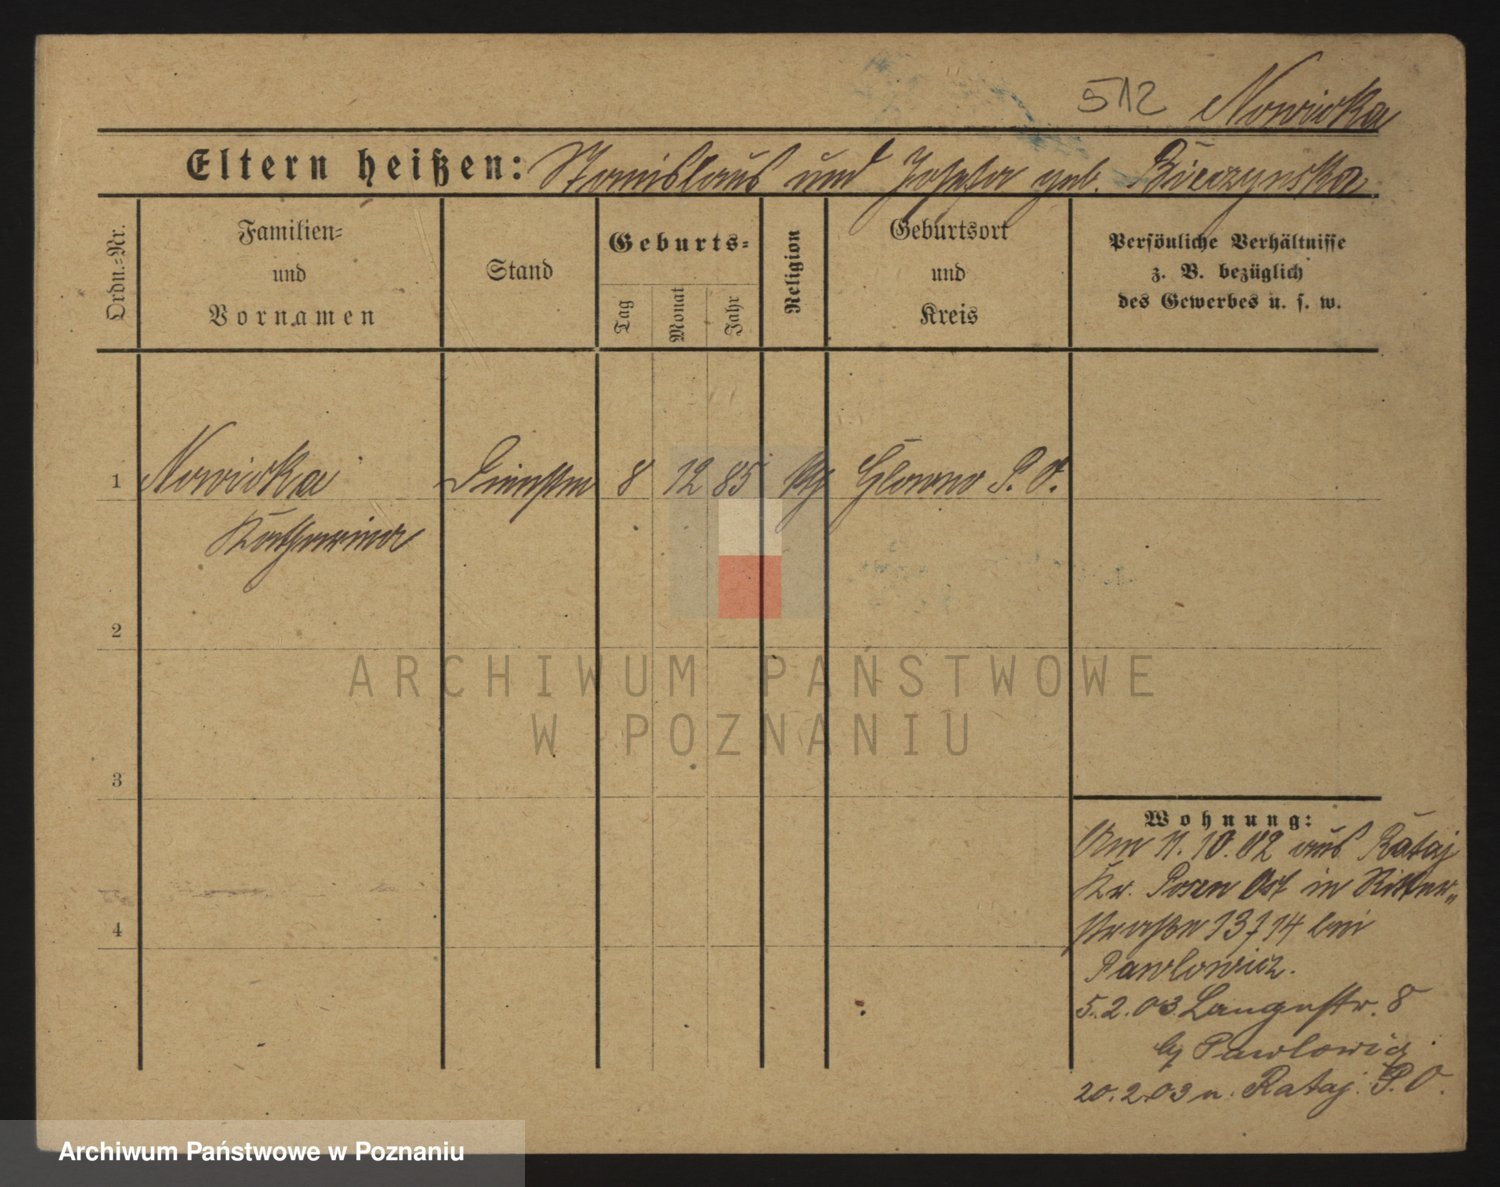 512 Nowicka
Eltern heißen: Stanislaus und Josefa geb.
Ordn.-Nr.
Familien-
und
Vornamen
Stand
Geburts-
Tag
Monat
Jahr
Religion
Geburtsort
und
Kreis
Persönliche Verhältnisse
z. B. bezüglich
des Gewerbes u. s. w.
1 Nowicka 8 12 85 Glowno P. O.
Katharina
2
3
4
Wohnung:
Am 11.10.02 aus Rataj
Kr. Posen Ost in Ritter-
straße 13/14 bei
Pawlowicz.
5.2.03 Langestr. 8
Pawlowicz
20.2.03 n. Rataj P. O.
ARCHIWUM PAŃSTWOWE
W POZNANIU
Archiwum Państwowe w Poznaniu